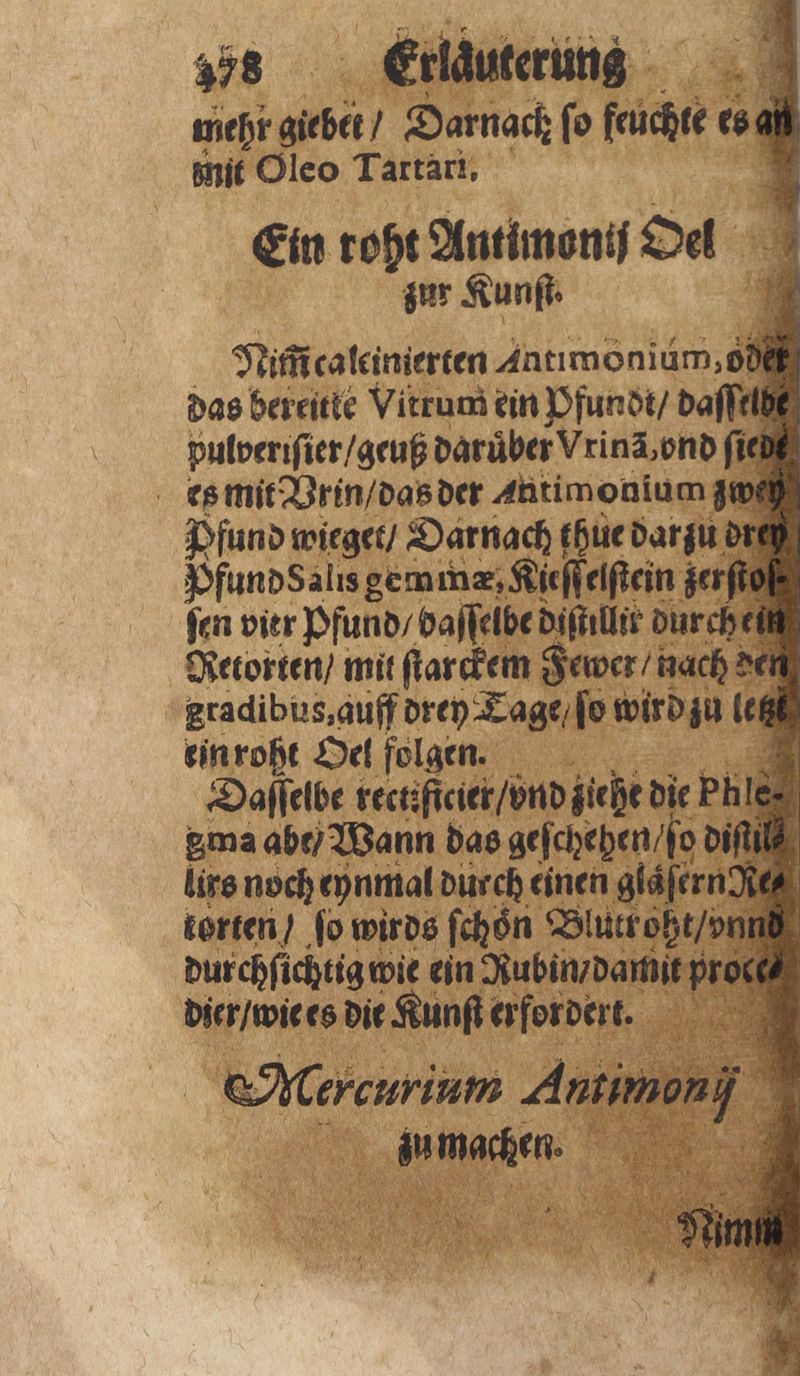 478 Erläuterung
mehr giebet / Darnach so feuchte es an
mit Oleo Tartari.
Ein roht Antimonij Oel
zur Kunst.
Nim̄ calcinierten Antimonium, oder
das bereitte Vitrum ein Pfundt / dasselbe
pulverisier / geuß darüber Vrinā, vnd siede
es mit Vrin / das der Antimonium zwey
Pfund wieget / Darnach thue darzu drey
Pfund Salis gemmæ, Kiesselstein zerstos-
sen vier Pfund / dasselbe distillir durch ein
Retorten / mit starckem Fewer / nach den
gradibus, auff drey Tage, so wird zu letzt
ein roht Oel folgen.
Dasselbe rectificier / vnd ziehe die Phle-
gma abe / Wann das geschehen / so distil-
lirs noch eynmal durch einen gläsern Re-
torten / so wirds schön Blutroht / vnnd
durchsichtig wie ein Rubin / damit proce-
dier / wie es die Kunst erfordert.
Mercurium Antimonij
zu machen.
Nimm